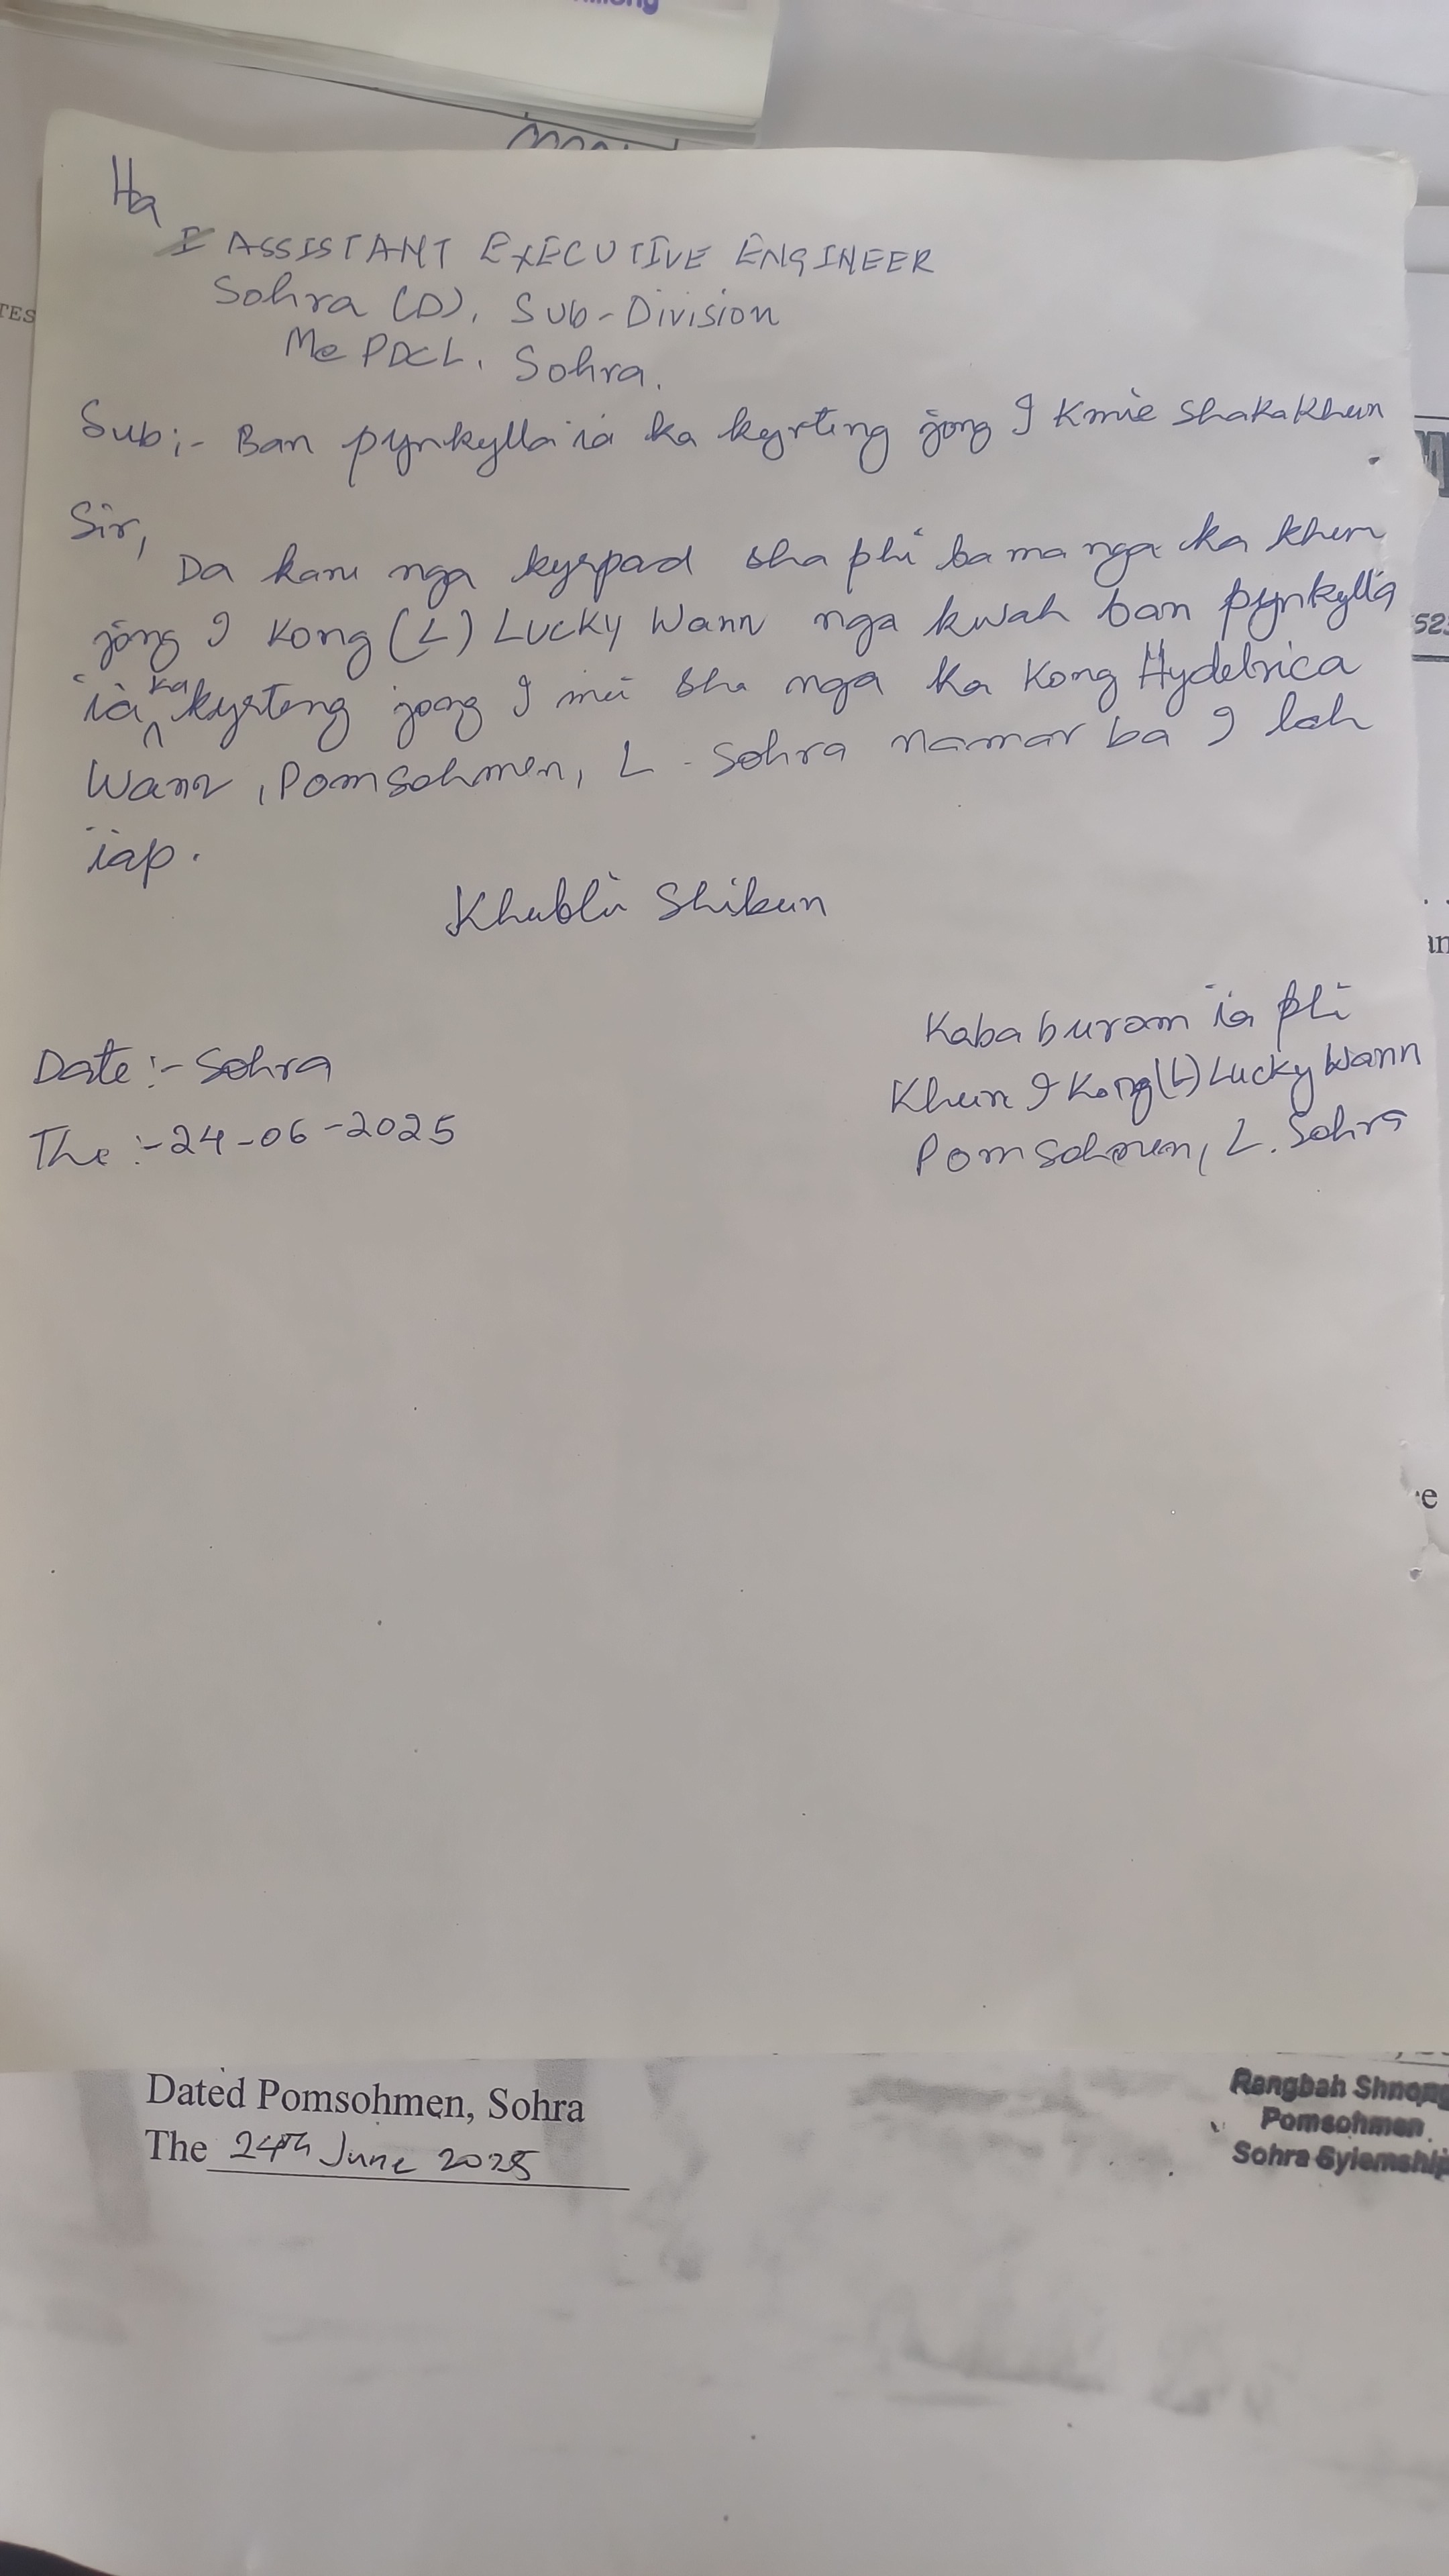 Ha
I ASSISTANT EXECUTIVE ENGINEER
Sohra (D), Sub-Division
MePDCL. Sohra.
Sub:- Ban pynkylla ia ka kyrteng jong I Kmie shaka Khun
Sir,
Da kane nga kyrpad sha phi ba ma nga ka khun
jong I Kong (L) Lucky Wann nga kwah ban pynkylla
ia ka kyrteng jong I mei sha nga ka Kong Hydelrica
Wann, Pomsohmen, L. Sohra Namar ba I lah
iap.
Khublei Shibun
Kaba burom ia phi
Date :- Sohra
Khun I Kong (L) Lucky Wann
The :- 24-06-2025
Pomsohmen, L. Sohra
Dated Pomsohmen, Sohra
The 24th June 2025
Rangbah Shnong
Pomsohmen
Sohra Syiemship